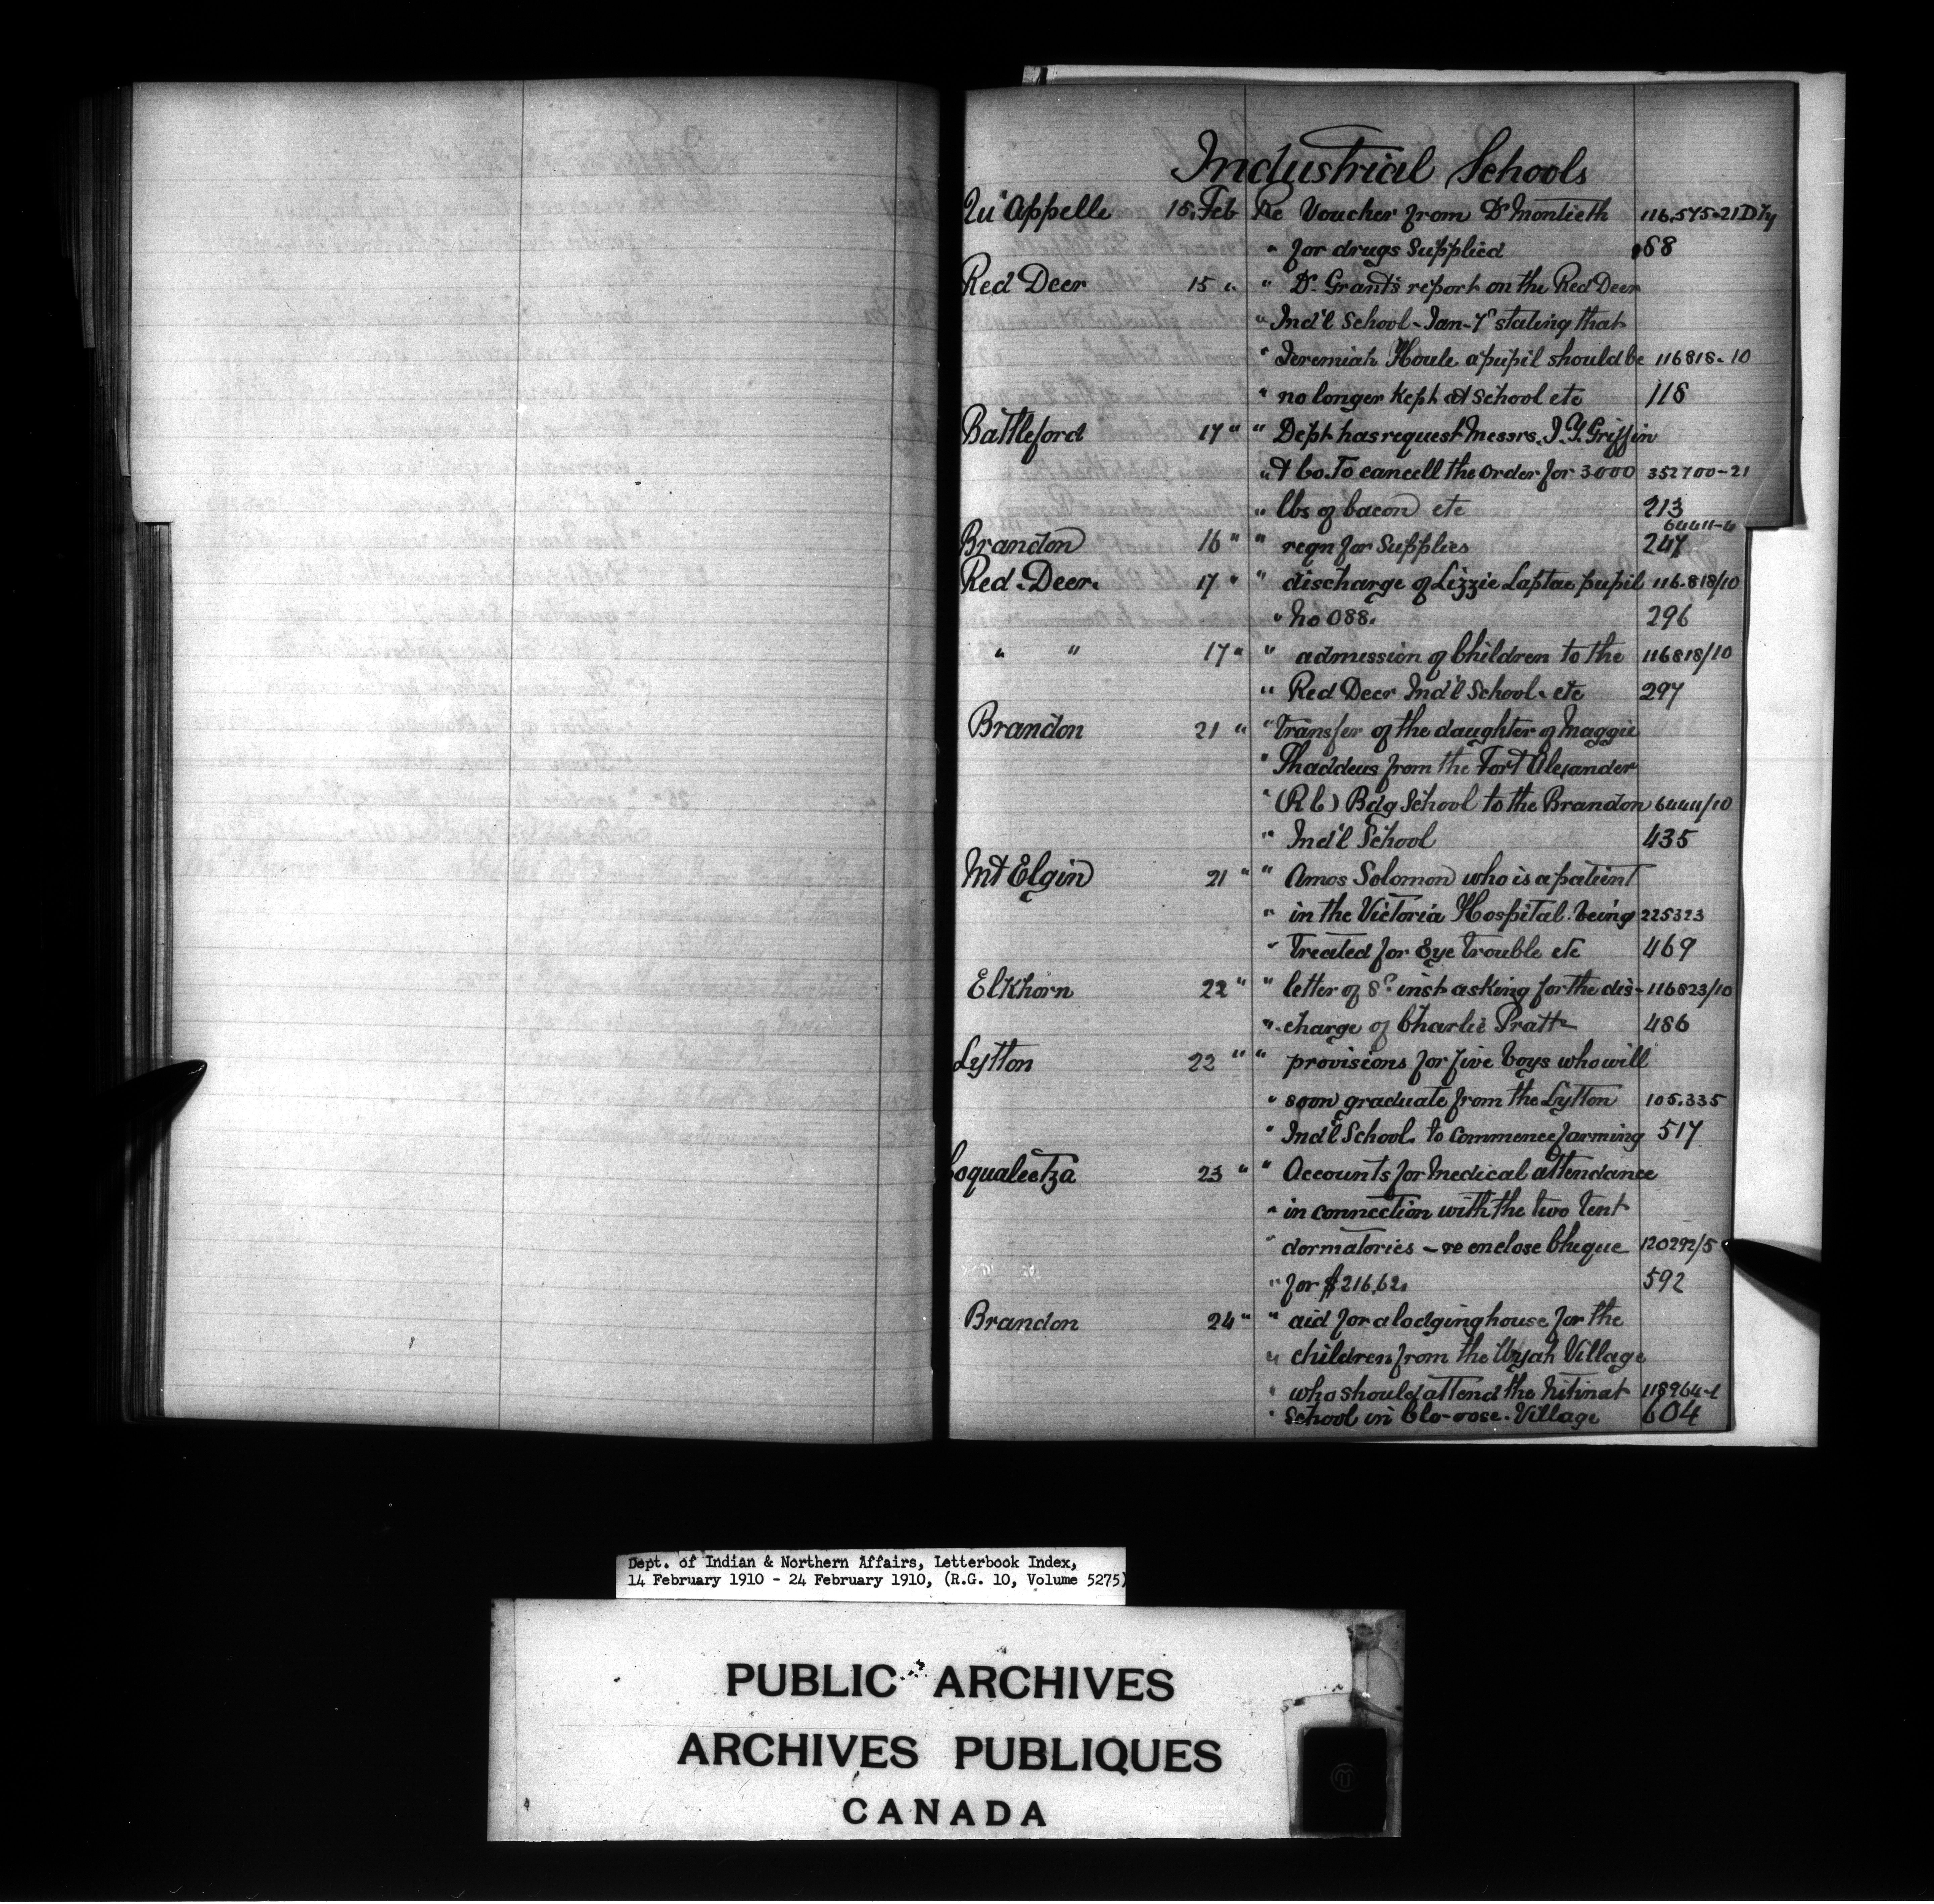 Industrial Schools
Qu'Appelle 15. Feb Re Voucher from Dr Montieth 116.575-21
" for drugs supplied 68
Red Deer 15 " " Dr. Grant's report on the Red Deer
" Ind'l School - Jan - stating that
" Jeremiah Houle a pupil should be 116818-10
" no longer kept at school etc 118
Battleford 17 " " Dept has request Messrs. J. Y. Griffin
" & Co. To cancell the order for 3000 352700-21
" lbs of bacon etc 213
Brandon 16 " " reqn for Supplies 247
Red. Deer. 17 " " discharge of Lizzie Laptae pupil 116.818/10
" No 088. 296
" " 17 " " admission of Children to the 116818/10
" Red Deer Ind'l School. etc 297
Brandon 21 " " Transfer of the daughter of Maggie
" Thaddeus from the Fort Alexander
" (R C) Bdg School to the Brandon 64411/10
" Ind'l School 435
Mt Elgin 21 " " Amos Solomon who is a patient
" in the Victoria Hospital. being 225323
" Treated for Eye Trouble etc 469
Elkhorn 22 " " letter of 8th inst asking for the dis- 116823/10
" charge of Charlie Pratt 486
Lytton 22 " " provisions for five boys who will
" soon graduate from the Lytton 105.335
" Ind'l School. to Commence farming 517
Coqualeetza 23 " " Accounts for Medical attendance
" in connection with the two Tent
" dormatories - re enclose Cheque 120292/5
" for $216.62. 592
Brandon 24 " " aid for a lodging house for the
" children from the Wyah Village
" who should attend the Nitinat 118964-1
" School in Clo-oose. Village 604
Dept. of Indian & Northern Affairs, Letterbook Index,
14 February 1910 - 24 February 1910, (R.G. 10, Volume 5275)
PUBLIC ARCHIVES
ARCHIVES PUBLIQUES
CANADA